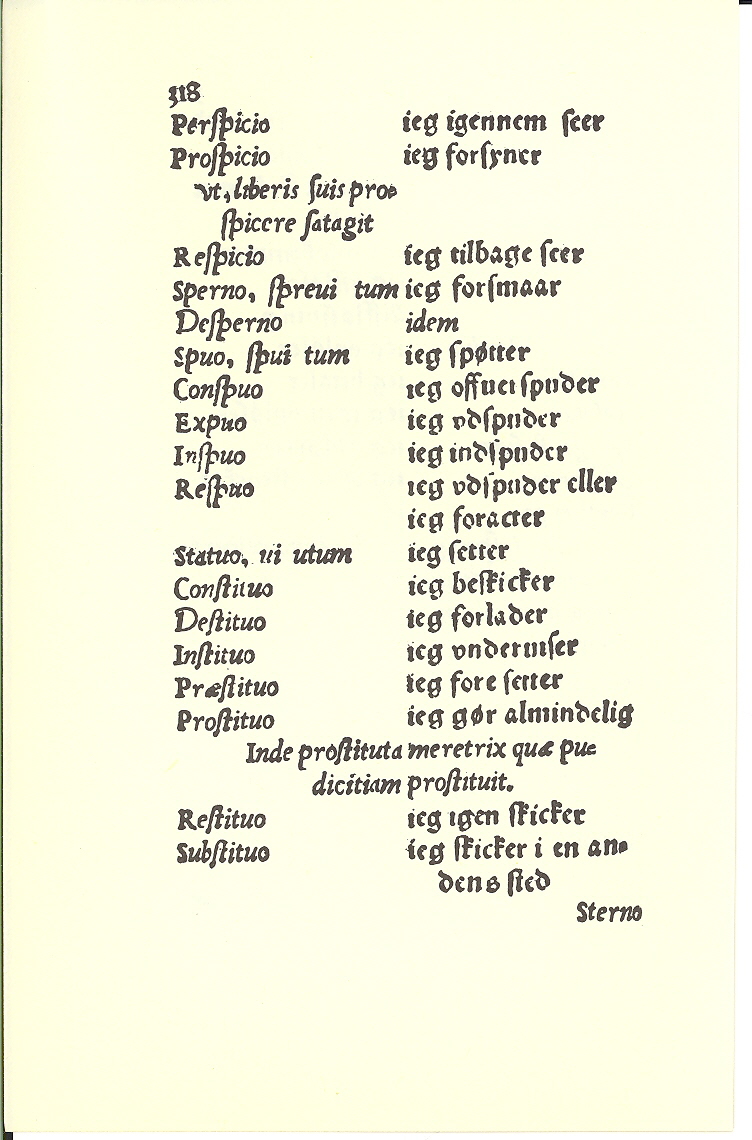 318
Perſpicio ieg igennem ſeer
Proſpicio ieg forſyner
vt, liberis ſuis pro⸗
ſpicere ſatagit
Reſpicio ieg tilbage ſeer
Sperno, ſpreui tum ieg forſmaar
Deſperno idem
Spuo, ſpui tum ieg ſpøtter
Conſpuo ieg offuer ſpuder
Expuo ieg vdſpuder
Inſpuo ieg indſpuder
Reſpuo ieg vdſpuder eller
ieg foracter
Statuo, ui utum ieg ſetter
Conſtituo ieg beſkicker
Deſtituo ieg forlader
Inſtituo ieg vnderuiſer
Præſtituo ieg fore ſetter
Proſtituo ieg gør almindelig
Inde proſtituta meretrix quæ pu⸗
dicitiam proſtituit.
Reſtituo ieg igen ſkicker
Subſtituo ieg ſkicker i en an⸗
dens ſted
Sterno